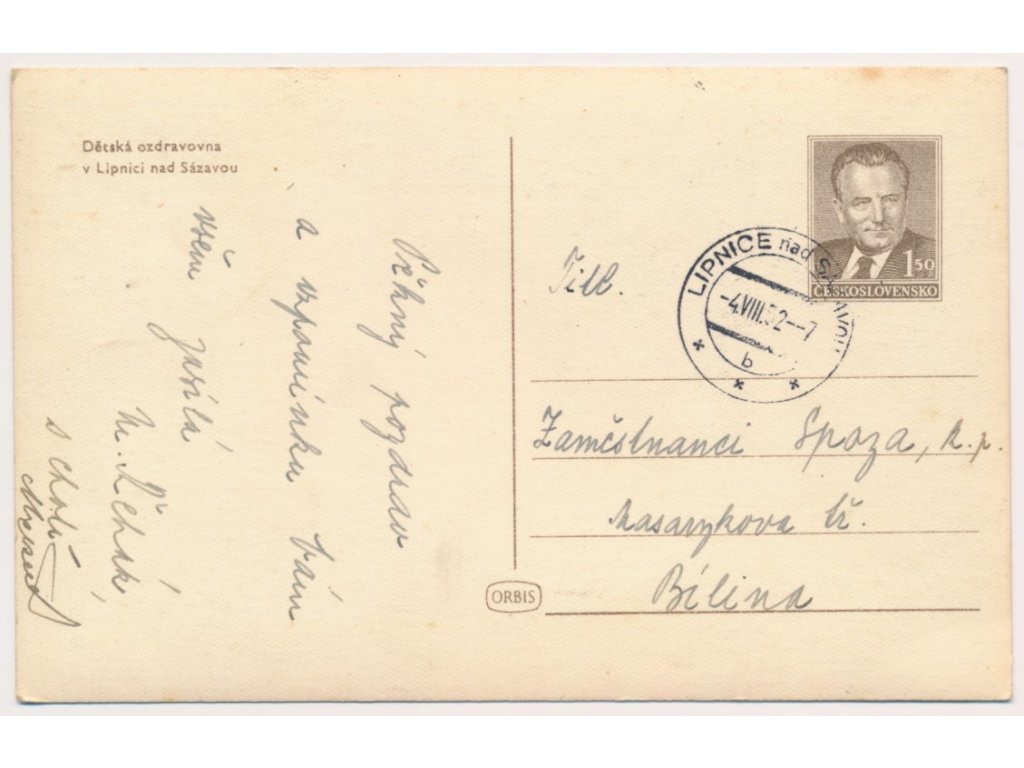 Dětská ozdravovna
v Lipnici nad Sázavou
Pěkný pozdrav
a vzpomínku Vám
všem zasílá
s chotí
1 50
ČESKOSLOVENSKO
LIPNICE nad SÁZAVOU
-4.VIII.52--7
b
Titl.
Zaměstnanci Spoza, n.p.
Masarykova tř.
Bílina
ORBIS